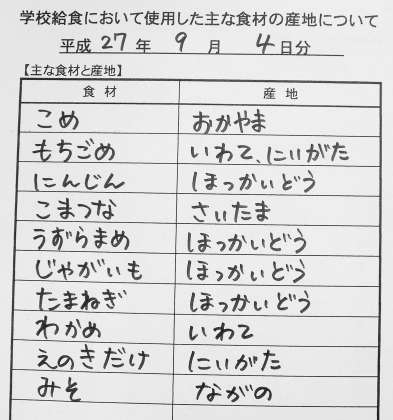 学校給食において使用した主な食材の産地について
平成 27 年 9 月 4 日分
【主な食材と産地】
食材 産地
こめ おかやま
もちごめ いわて、にいがた
にんじん ほっかいどう
こまつな さいたま
うずらまめ ほっかいどう
じゃがいも ほっかいどう
たまねぎ ほっかいどう
わかめ いわて
えのきだけ にいがた
みそ ながの